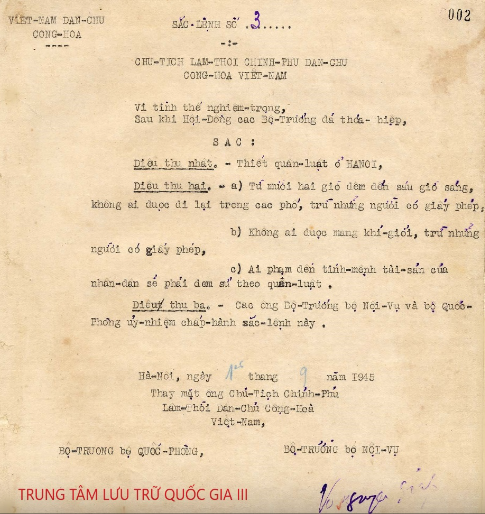 VIỆT-NAM DAN-CHU
CỘNG-HOÀ
SẮC-LỆNH SỐ 3.....
002
-:-
CHU-TỊCH LAM-THOI CHINH-PHU DAN-CHU
CONG-HOA VIÊT-NAM
Vi tinh thế nghiêm-trọng,
Sau khi Hội-Dong các Bộ-Trưởng đã thỏa-hiệp,
S A C :
Diệu thu nhất. - Thiết quân-luật ở HANOI,
Diệu thu hai. - a) Từ mười hai giờ dêm đến sáu giờ sáng,
không ai được đi lại trong các phố, trừ những người có giấy phép,
b) Không ai được mang khí-giới, trừ những
người có giấy phép,
c) Ai phạm đến tính-mệnh tài-sản của
nhân-dân sẽ phải đem sử theo quân-luật .
Diệu thu ba. - Các ông Bộ-Trưởng bộ Nội-Vụ và bộ Quốc-
Phòng uỷ-nhiệm chấp-hành sắc-lệnh này .
Hà-Nội, ngày 1er thang 9 năm 1945
Thay mặt ông Chủ-Tịch Chính-Phủ
Lam-Thời Dân-Chủ Cộng-Hoà
Việt-Nam,
BỘ-TRUONG bộ QUỐC-PHÒNG,
BỘ-TRƯỞNG bộ NỘI-VỤ
TRUNG TÂM LƯU TRỮ QUỐC GIA III